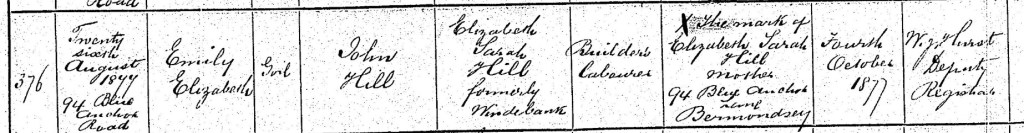 Road
376
Twenty
sixth
August
1877
94 Blue
Anchor
Road
Emily
Elizabeth
Girl
John
Hill
Elizabeth
Sarah
Hill
formerly
Windebank
Builders
Labourer
X The mark of
Elizabeth Sarah
Hill
Mother
94 Blue Anchor
Lane
Bermondsey
Fourth
October
1877
Hurst
Deputy
Registrar